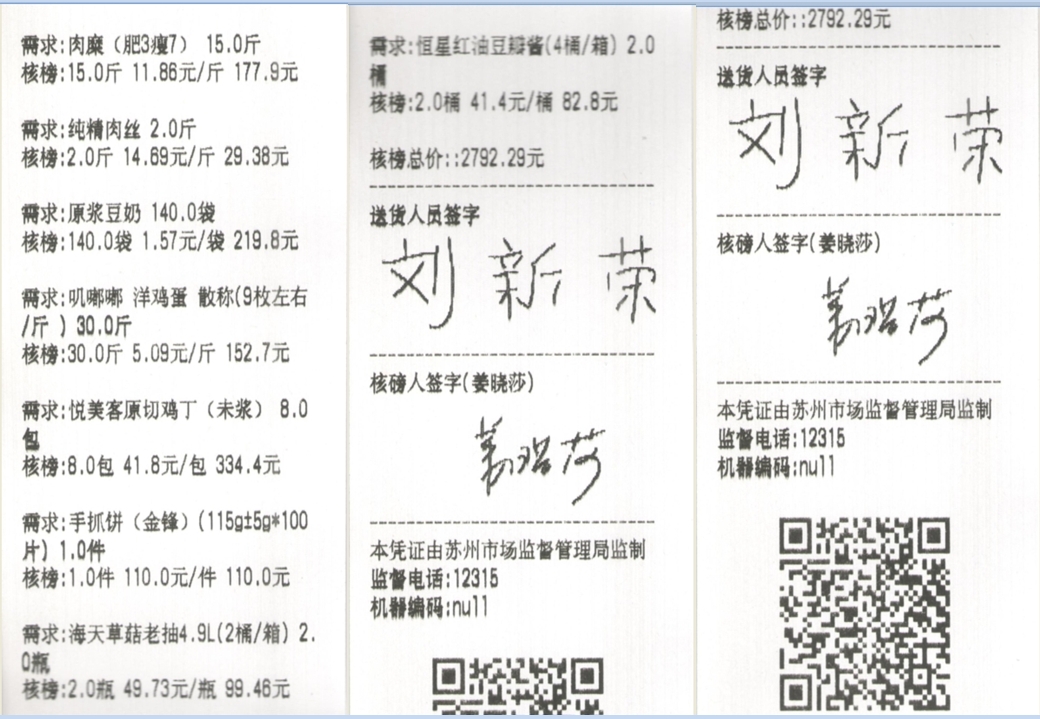 需求:肉糜（肥3瘦7） 15.0斤
核榜:15.0斤 11.86元/斤 177.9元
需求:纯精肉丝 2.0斤
核榜:2.0斤 14.69元/斤 29.38元
需求:原浆豆奶 140.0袋
核榜:140.0袋 1.57元/袋 219.8元
需求:叽嘟嘟 洋鸡蛋 散称(9枚左右
/斤 ) 30.0斤
核榜:30.0斤 5.09元/斤 152.7元
需求:悦美客原切鸡丁（未浆） 8.0
包
核榜:8.0包 41.8元/包 334.4元
需求:手抓饼（金锋）(115g±5g*100
片) 1.0件
核榜:1.0件 110.0元/件 110.0元
需求:海天草菇老抽4.9L(2桶/箱) 2.
0瓶
核榜:2.0瓶 49.73元/瓶 99.46元
需求:恒星红油豆瓣酱(4桶/箱) 2.0
桶
核榜:2.0桶 41.4元/桶 82.8元
核榜总价::2792.29元
送货人员签字
刘新荣
核磅人签字(姜晓莎)
姜晓莎
本凭证由苏州市场监督管理局监制
监督电话:12315
机器编码:null
核榜总价::2792.29元
送货人员签字
刘新荣
核磅人签字(姜晓莎)
姜晓莎
本凭证由苏州市场监督管理局监制
监督电话:12315
机器编码:null